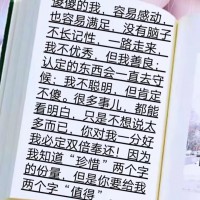 傻傻的我，容易感动，
也容易满足，没有脑子
不长记性，一路走来，
我不优秀，但我善良：
认定的东西会一直去守
候；我不聪明，但肯定
不傻。很多事儿，都能
看明白，只是不想说太
多而已，你对我一分好
我必定双倍奉还！因为
我知道“珍惜”两个字
的份量，但是你要给我
两个字“值得”